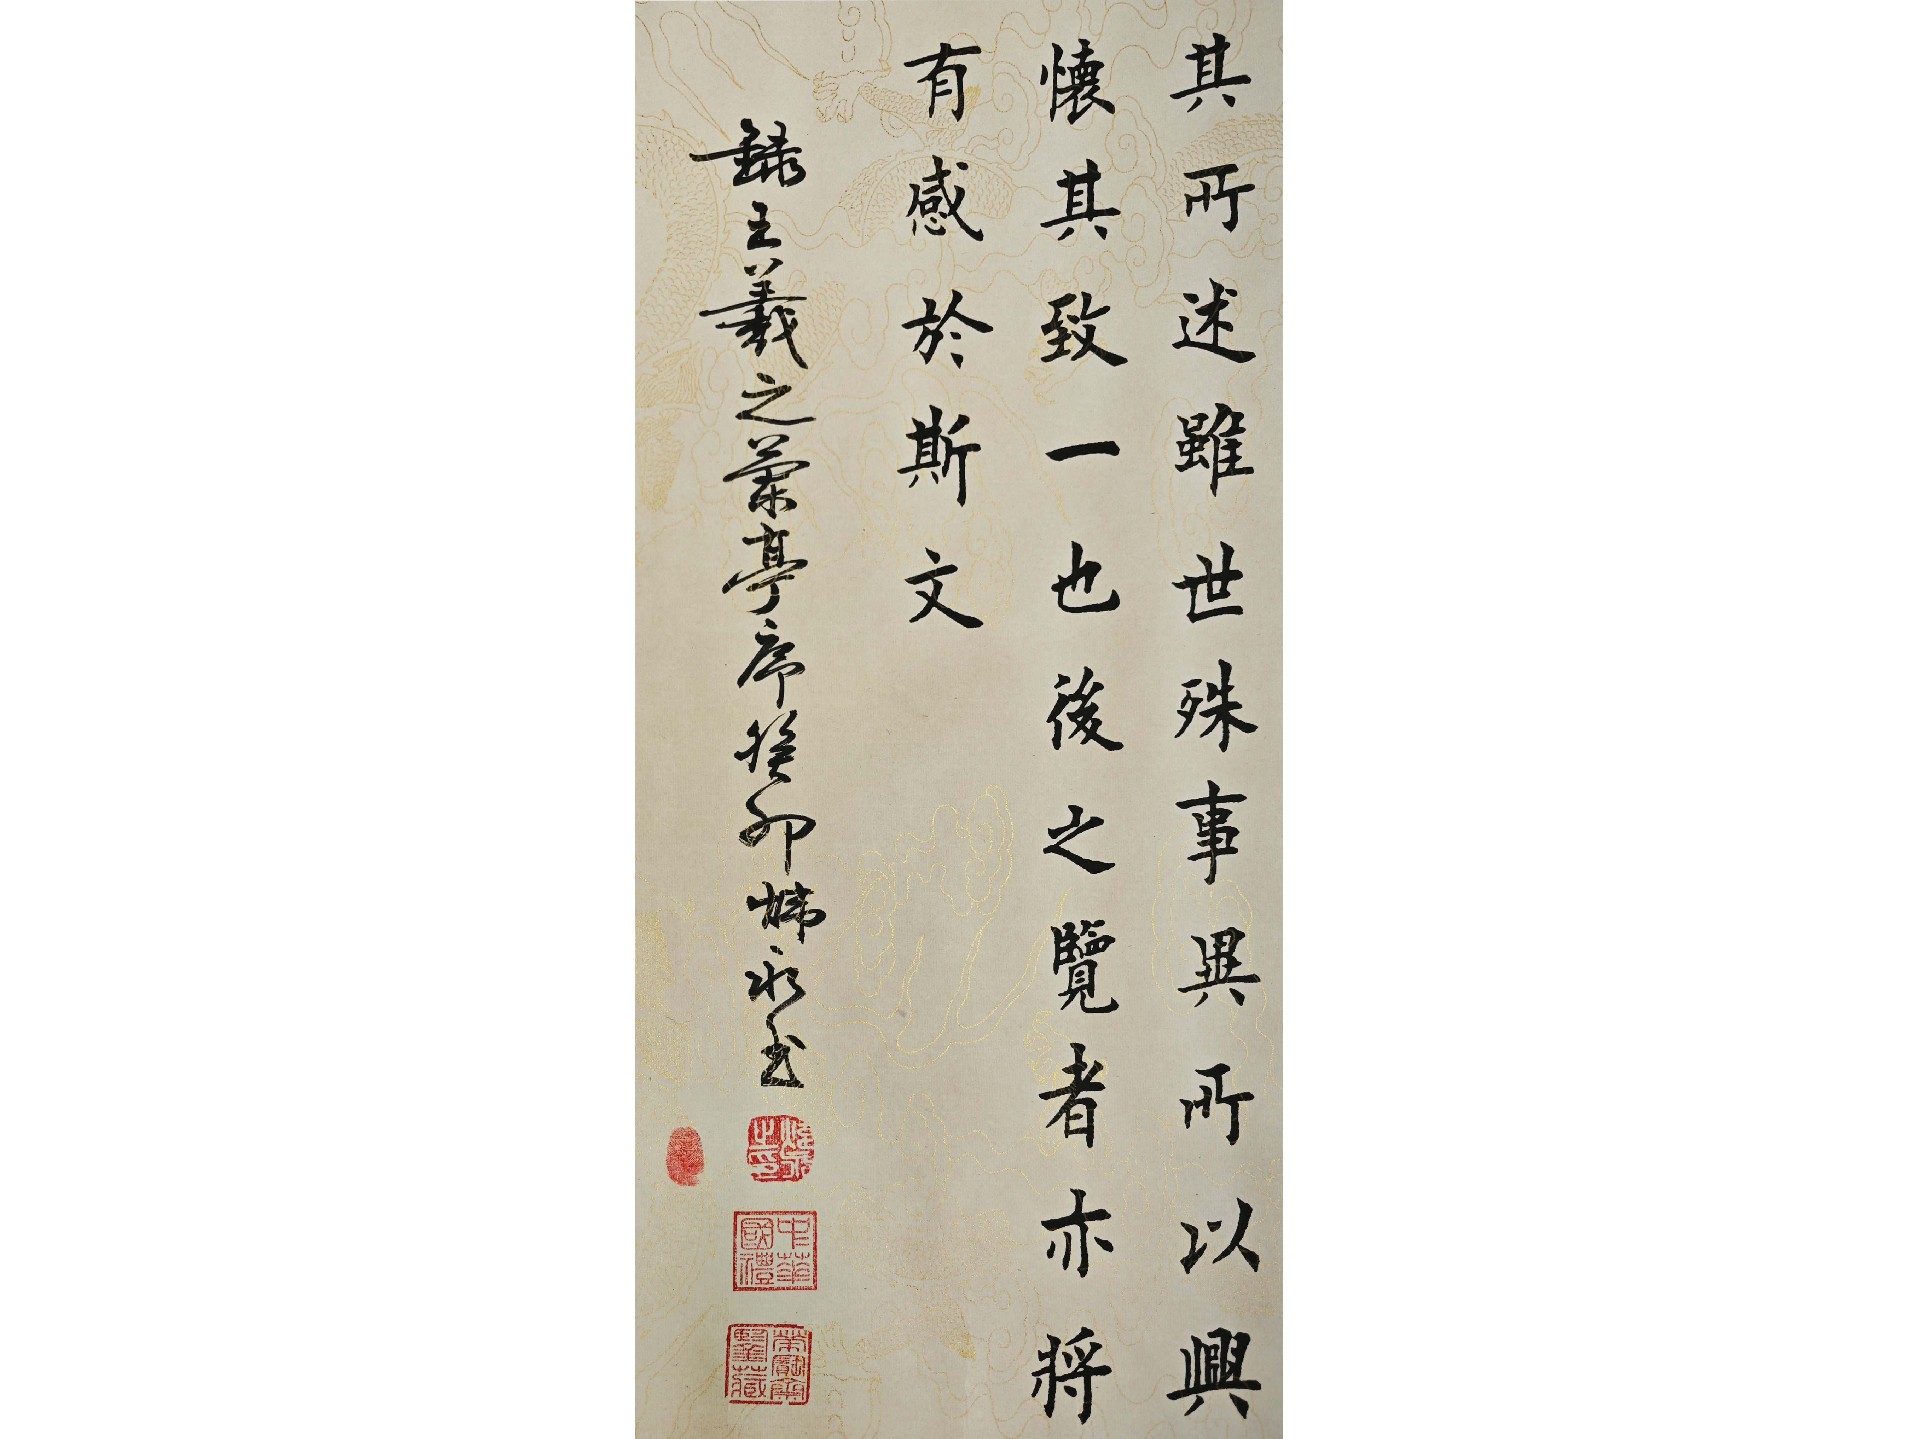 其所述雖世殊事異所以興
懷其致一也後之覽者亦將
有感於斯文
錄王羲之蘭亭序癸卯煒永书
中華國禮
榮寶齋鑒藏